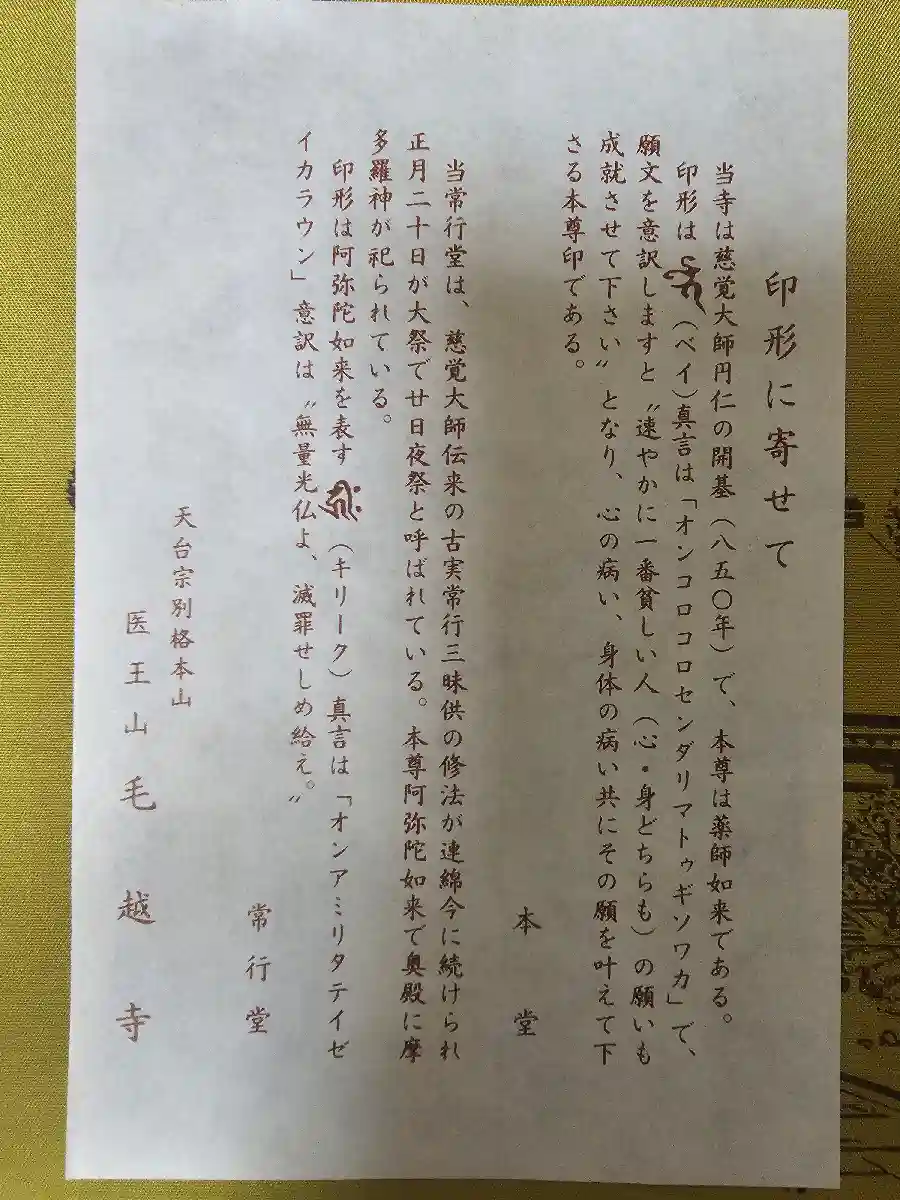 印形に寄せて
当寺は慈覚大師円仁の開基（八五〇年）で、本尊は薬師如来である。
印形は（ベイ）真言は「オンコロコロセンダリマトゥギソワカ」で、
願文を意訳しますと〝速やかに一番貧しい人（心・身どちらも）の願いも
成就させて下さい〟となり、心の病い、身体の病い共にその願を叶えて下
さる本尊印である。
本堂
当常行堂は、慈覚大師伝来の古実常行三昧供の修法が連綿今に続けられ
正月二十日が大祭で廿日夜祭と呼ばれている。本尊阿弥陀如来で奥殿に摩
多羅神が祀られている。
印形は阿弥陀如来を表す（キリーク）真言は「オンアミリタテイゼ
イカラウン」意訳は〝無量光仏よ、滅罪せしめ給え。〟
常行堂
天台宗別格本山
医王山毛越寺